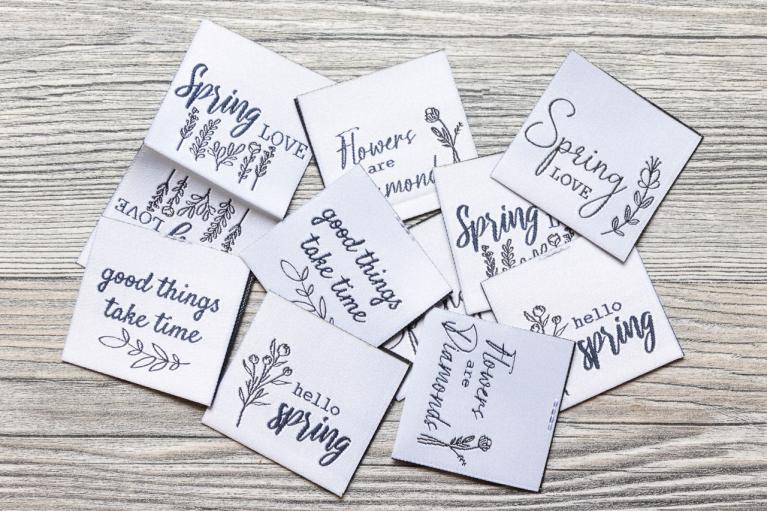 Spring
LOVE
Flowers
are
Spring
LOVE
LOVE
good things
take time
Spring
good things
take time
hello
spring
hello
spring
Flowers
are
Diamonds